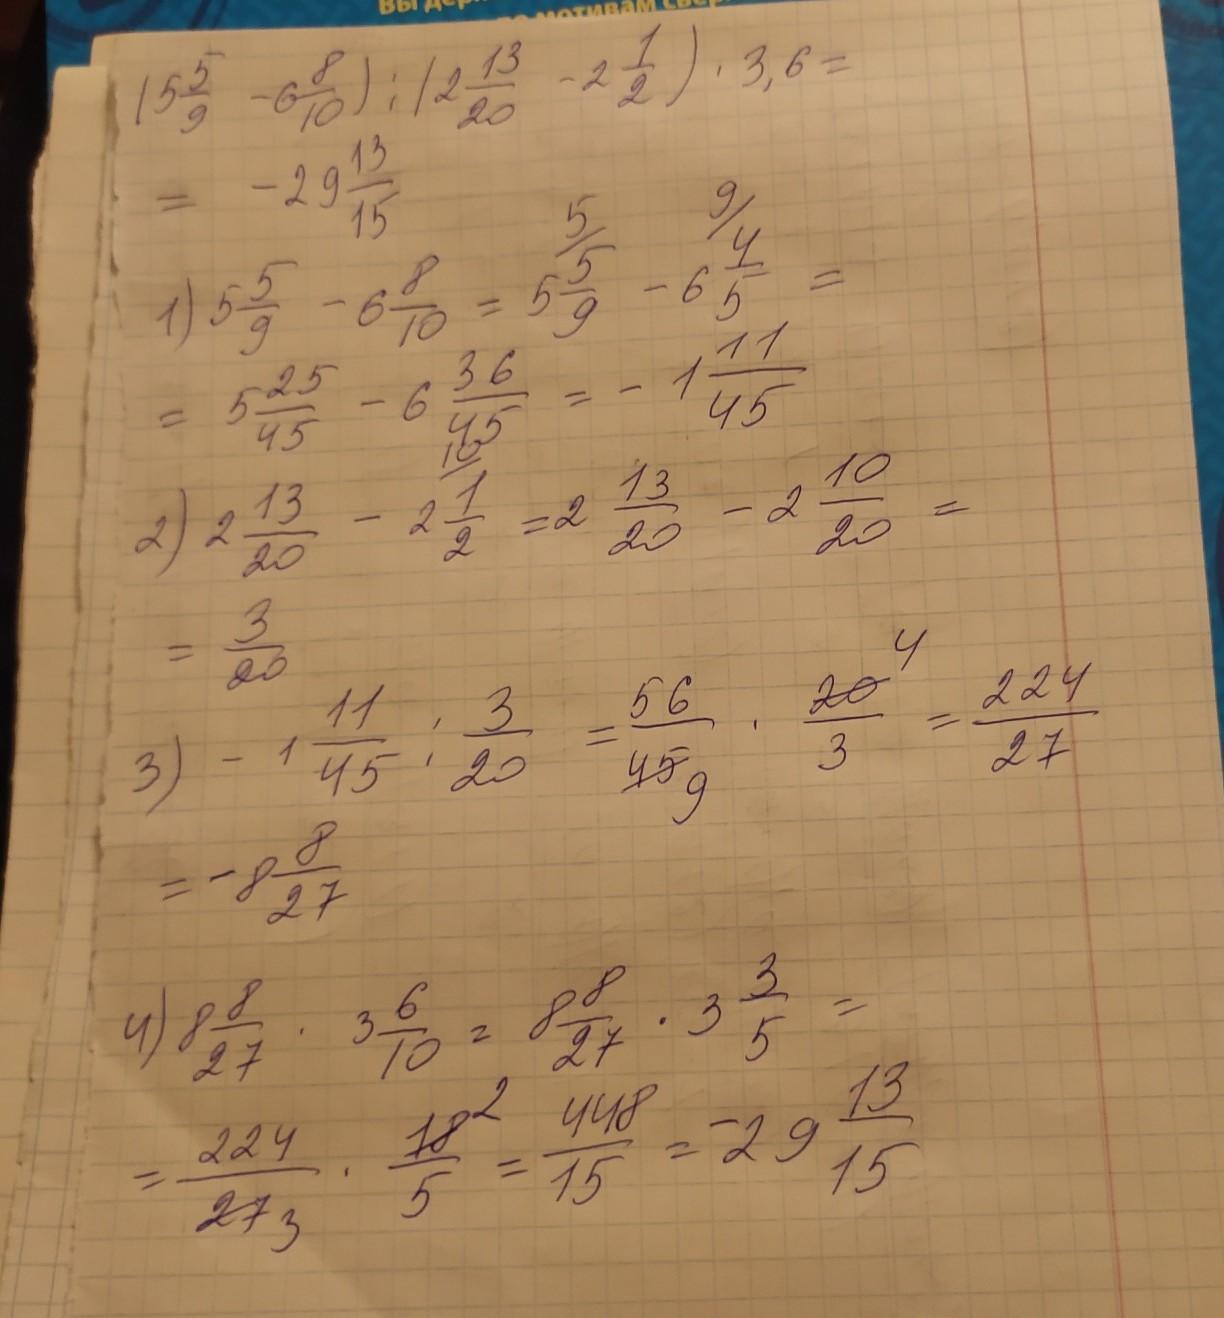 Вы
по мотивам
(5 5/9 - 6 8/10) : (2 13/20 - 2 1/2) · 3,6 =
= -29 13/15
1) 5 5/9 - 6 8/10 = 5 5/9 - 6 4/5 =
= 5 25/45 - 6 36/45 = -1 11/45
2) 2 13/20 - 2 1/2 = 2 13/20 - 2 10/20 =
= 3/20
3) -1 11/45 : 3/20 = 56/45 9 · 20 4/3 = 224/27
= -8 8/27
4) 8 8/27 · 3 6/10 = 8 8/27 · 3 3/5 =
= 224/27 3 · 18 2/5 = 448/15 = -29 13/15